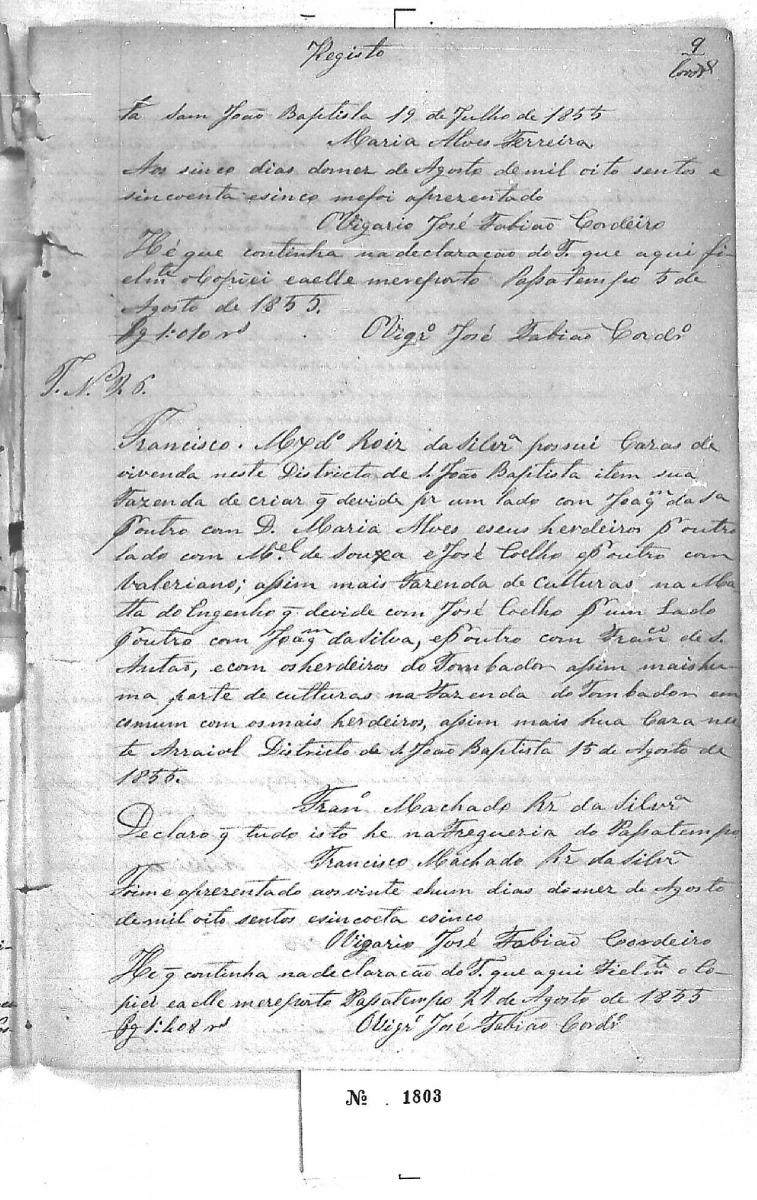 Registo
9
Cordrº
ta Sam João Baptista 19 de Julho de 1855
Maria Alves Ferreira
Aos sinco dias domez de Agosto demil oito sentos e
sincoenta esinco mefoi aprezentado
OVigario José Fabião Cordeiro
Hé que continha na declaracao do T. que aqui fi-
elmte o Copiei eaelle mereporto Passatempo 5 de
Agosto de 1855.
Pg 1:010 rs OVigrº José Fabião Cordrº
T. Nº 26.
Francisco Mxdº Roiz da Silvª possui Cazas de
vivenda neste Districto de S. João Baptista item sua
Fazenda de criar q devide pr um lado com Joaqm da Sa
Pr outro com D. Maria Alves eseus herdeiros Pr outro
lado com Mel de Souza e José Coelho e Pr outro com
Valeriano; assim mais Fazenda de Culturas na Ma
tta do Engenho q devide com José Coelho Pr um Lado
Pr outro com Joaqm da Silva, e Pr outro com Franco de S.
Antaõ, ecom osherdeiros do Tombador assim maishu-
ma parte de culturas na Fazenda do Tombador em
comum com osmais herdeiros, assim mais hua Caza nes
te Arraiol Districto de S. João Baptista 15 de Agosto de
1855.
Franº Machado Rz da Silvª
Declaro q tudo isto he na Fregueria do Passatempo
Francisco Machado Rz da Silvª
Foime aprezentado aos vinte ehum dias domez de Agosto
demil oito sentos esincocta esinco
OVigario José Fabião Cordeiro
He q continha nadeclaracão do T. que aqui Fielmte o Co-
piei eaelle mereporto Passatempo 21 de Agosto de 1855
Pg 1:408 rs OVigrº José Fabião Cordrº
Nº 1803